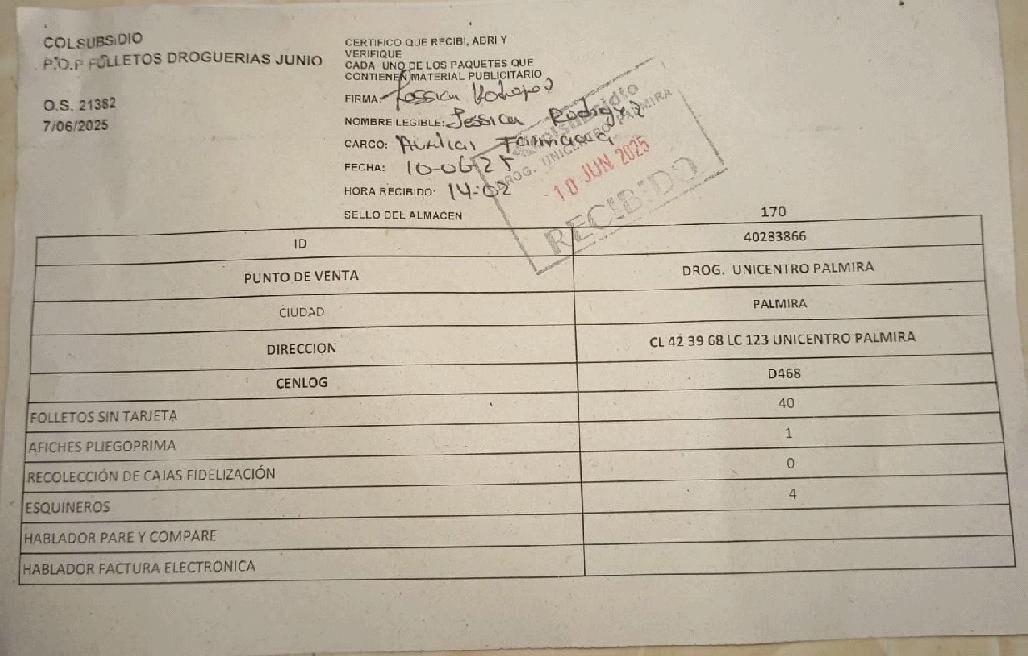 COLSUBSIDIO
P.O.P FOLLETOS DROGUERIAS JUNIO
O.S. 21382
7/06/2025
CERTIFICO QUE RECIBI, ABRI Y
VERIFIQUE
CADA UNO DE LOS PAQUETES QUE
CONTIENEN MATERIAL PUBLICITARIO
FIRMA: Jessica
NOMBRE LEGIBLE: Jessica Rodriguez
CARGO: Auxiliar Farmacia
FECHA: 10-06-25
HORA RECIBIDO: 14-02
SELLO DEL ALMACEN
Colsubsidio
DROG. UNICENTRO PALMIRA
10 JUN 2025
RECIBIDO
170
ID 40283866
PUNTO DE VENTA DROG. UNICENTRO PALMIRA
CIUDAD PALMIRA
DIRECCION CL 42 39 68 LC 123 UNICENTRO PALMIRA
CENLOG D468
FOLLETOS SIN TARJETA 40
AFICHES PLIEGOPRIMA 1
RECOLECCIÓN DE CAJAS FIDELIZACIÓN 0
ESQUINEROS 4
HABLADOR PARE Y COMPARE
HABLADOR FACTURA ELECTRONICA